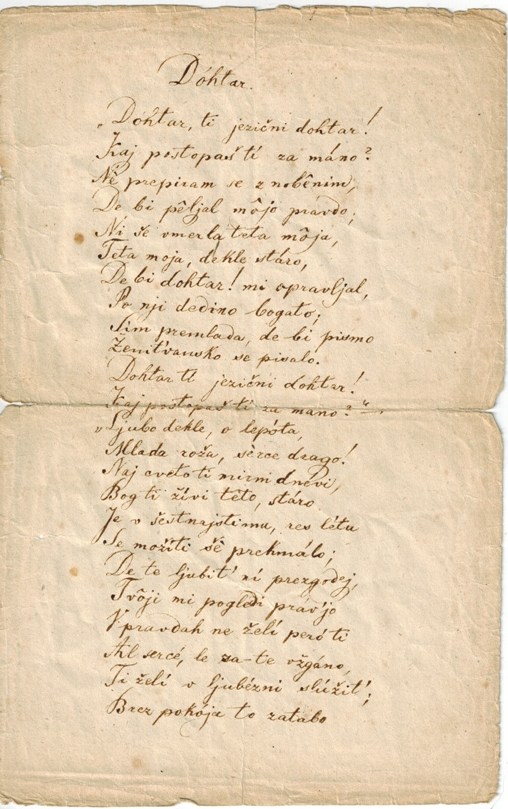 Dóhtar.
„Dóhtar, ti jezični dohtar!
Kaj postopaš ti za máno?
Ne prepiram se z nobênim,
De bi pêljal môjo pravdo;
Ni še vmerla teta môja,
Teta moja, dekle stáro,
De bi dohtar! mi opravljal,
Po nji dedino bogato;
Sim premlada, de bi pismo
Ženitvansko se pisalo.
Dohtar ti jezični dohtar!
Kaj postopaš ti za máno?“
„Ljubo dekle, o lepóta,
Mlada roža, sèrce drago!
Naj cvetó ti mirni dnévi,
Bog ti živi této, stáro
Je v šestnajstimu, res létu
Se možíti šê prehmálo;
De te ljubit' ní prezgódej,
Tvôji mi poglèdi právjo
V pravdah ne želí peró ti
Ak sercé, le za-te vžgáno,
Ti želí v ljubézni slúžit';
Brez pokója to zatabo